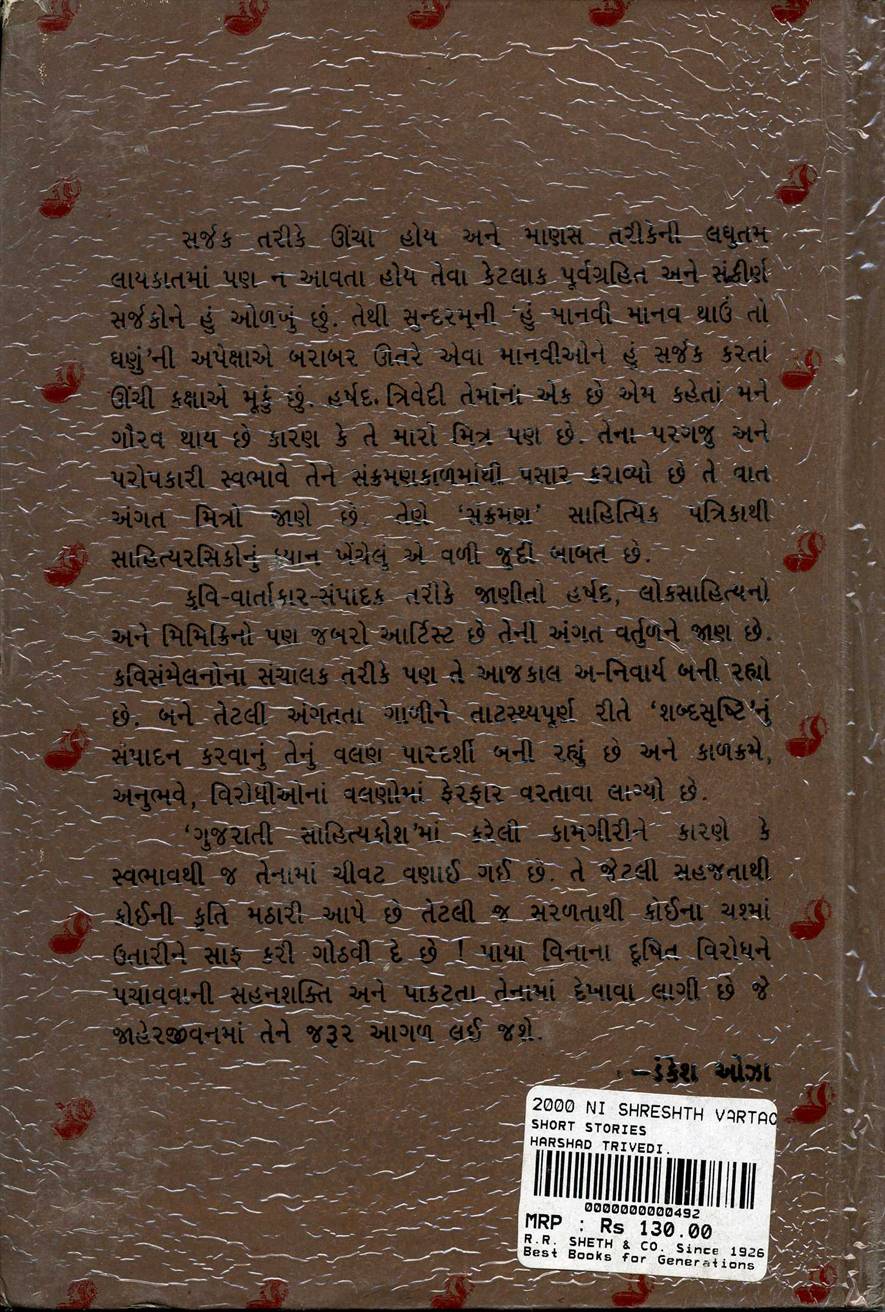 સર્જક તરીકે ઊંચા હોય અને માણસ તરીકેની લઘુતમ
લાયકાતમાં પણ ન આવતા હોય તેવા કેટલાક પૂર્વગ્રહિત અને સંકીર્ણ
સર્જકોને હું ઓળખું છું. તેથી સુન્દરમ્‌ની ‘હું માનવી માનવ થાઉં તો
ઘણું’ની અપેક્ષાએ બરાબર ઊતરે એવા માનવીઓને હું સર્જક કરતાં
ઊંચી કક્ષાએ મૂકું છું. હર્ષદ ત્રિવેદી તેમાંના એક છે એમ કહેતાં મને
ગૌરવ થાય છે કારણ કે તે મારો મિત્ર પણ છે. તેના પરગજુ અને
પરોપકારી સ્વભાવે તેને સંક્રમણકાળમાંથી પસાર કરાવ્યો છે તે વાત
અંગત મિત્રો જાણે છે. તેણે ‘સંક્રમણ’ સાહિત્યિક પત્રિકાથી
સાહિત્યરસિકોનું ધ્યાન ખેંચેલું એ વળી જુદી બાબત છે.
કવિ-વાર્તાકાર-સંપાદક તરીકે જાણીતો હર્ષદ, લોકસાહિત્યનો
અને મિમિક્રિનો પણ જબરો આર્ટિસ્ટ છે તેની અંગત વર્તુળને જાણ છે.
કવિસંમેલનોના સંચાલક તરીકે પણ તે આજકાલ અ-નિવાર્ય બની રહ્યો
છે. બને તેટલી અંગતતા ગાળીને તાટસ્થ્યપૂર્ણ રીતે ‘શબ્દસૃષ્ટિ’નું
સંપાદન કરવાનું તેનું વલણ પારદર્શી બની રહ્યું છે અને કાળક્રમે,
અનુભવે, વિરોધીઓનાં વલણોમાં ફેરફાર વરતાવા લાગ્યો છે.
‘ગુજરાતી સાહિત્યકોશ’માં કરેલી કામગીરીને કારણે કે
સ્વભાવથી જ તેનામાં ચીવટ વણાઈ ગઈ છે. તે જેટલી સહજતાથી
કોઈની કૃતિ મઠારી આપે છે તેટલી જ સરળતાથી કોઈના ચશ્માં
ઉતારીને સાફ કરી ગોઠવી દે છે ! પાયા વિનાના દૂષિત વિરોધને
પચાવવાની સહનશક્તિ અને પાકટતા તેનામાં દેખાવા લાગી છે જે
જાહેરજીવનમાં તેને જરૂર આગળ લઈ જશે.
–ડંકેશ ઓઝા
2000 NI SHRESHTH VARTAO
SHORT STORIES
HARSHAD TRIVEDI.
0000000000492
MRP : Rs 130.00
R.R. SHETH & CO. Since 1926
Best Books for Generations